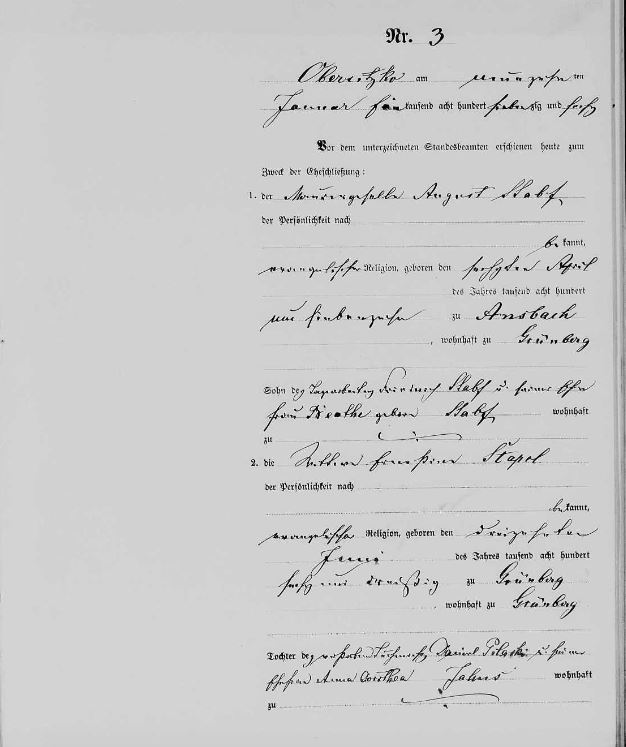 Nr. 3
Obersitzko am neunzehn ten
Januar ein tausend acht hundert sieben zig und sechs
Vor dem unterzeichneten Standesbeamten erschienen heute zum
Zweck der Eheschließung:
1. der Maurergeselle August Stabf
der Persönlichkeit nach
be kannt,
evangelischer Religion, geboren den sechsten April
des Jahres tausend acht hundert
zu Ansbach
, wohnhaft zu Grünberg
Sohn des Tagearbeiters Friedrich Stabf u. seiner Ehe
frau geborne Stabf wohnhaft
zu
2. die Wittwe Ernestine Stapel
der Persönlichkeit nach
be kannt,
evangelischer Religion, geboren den dreizehnten
Juni des Jahres tausend acht hundert
sechs und dreißig zu Grünberg
, wohnhaft zu Grünberg
Tochter des Daniel u. seiner
Ehefrau Anna Dorothea Jahns wohnhaft
zu